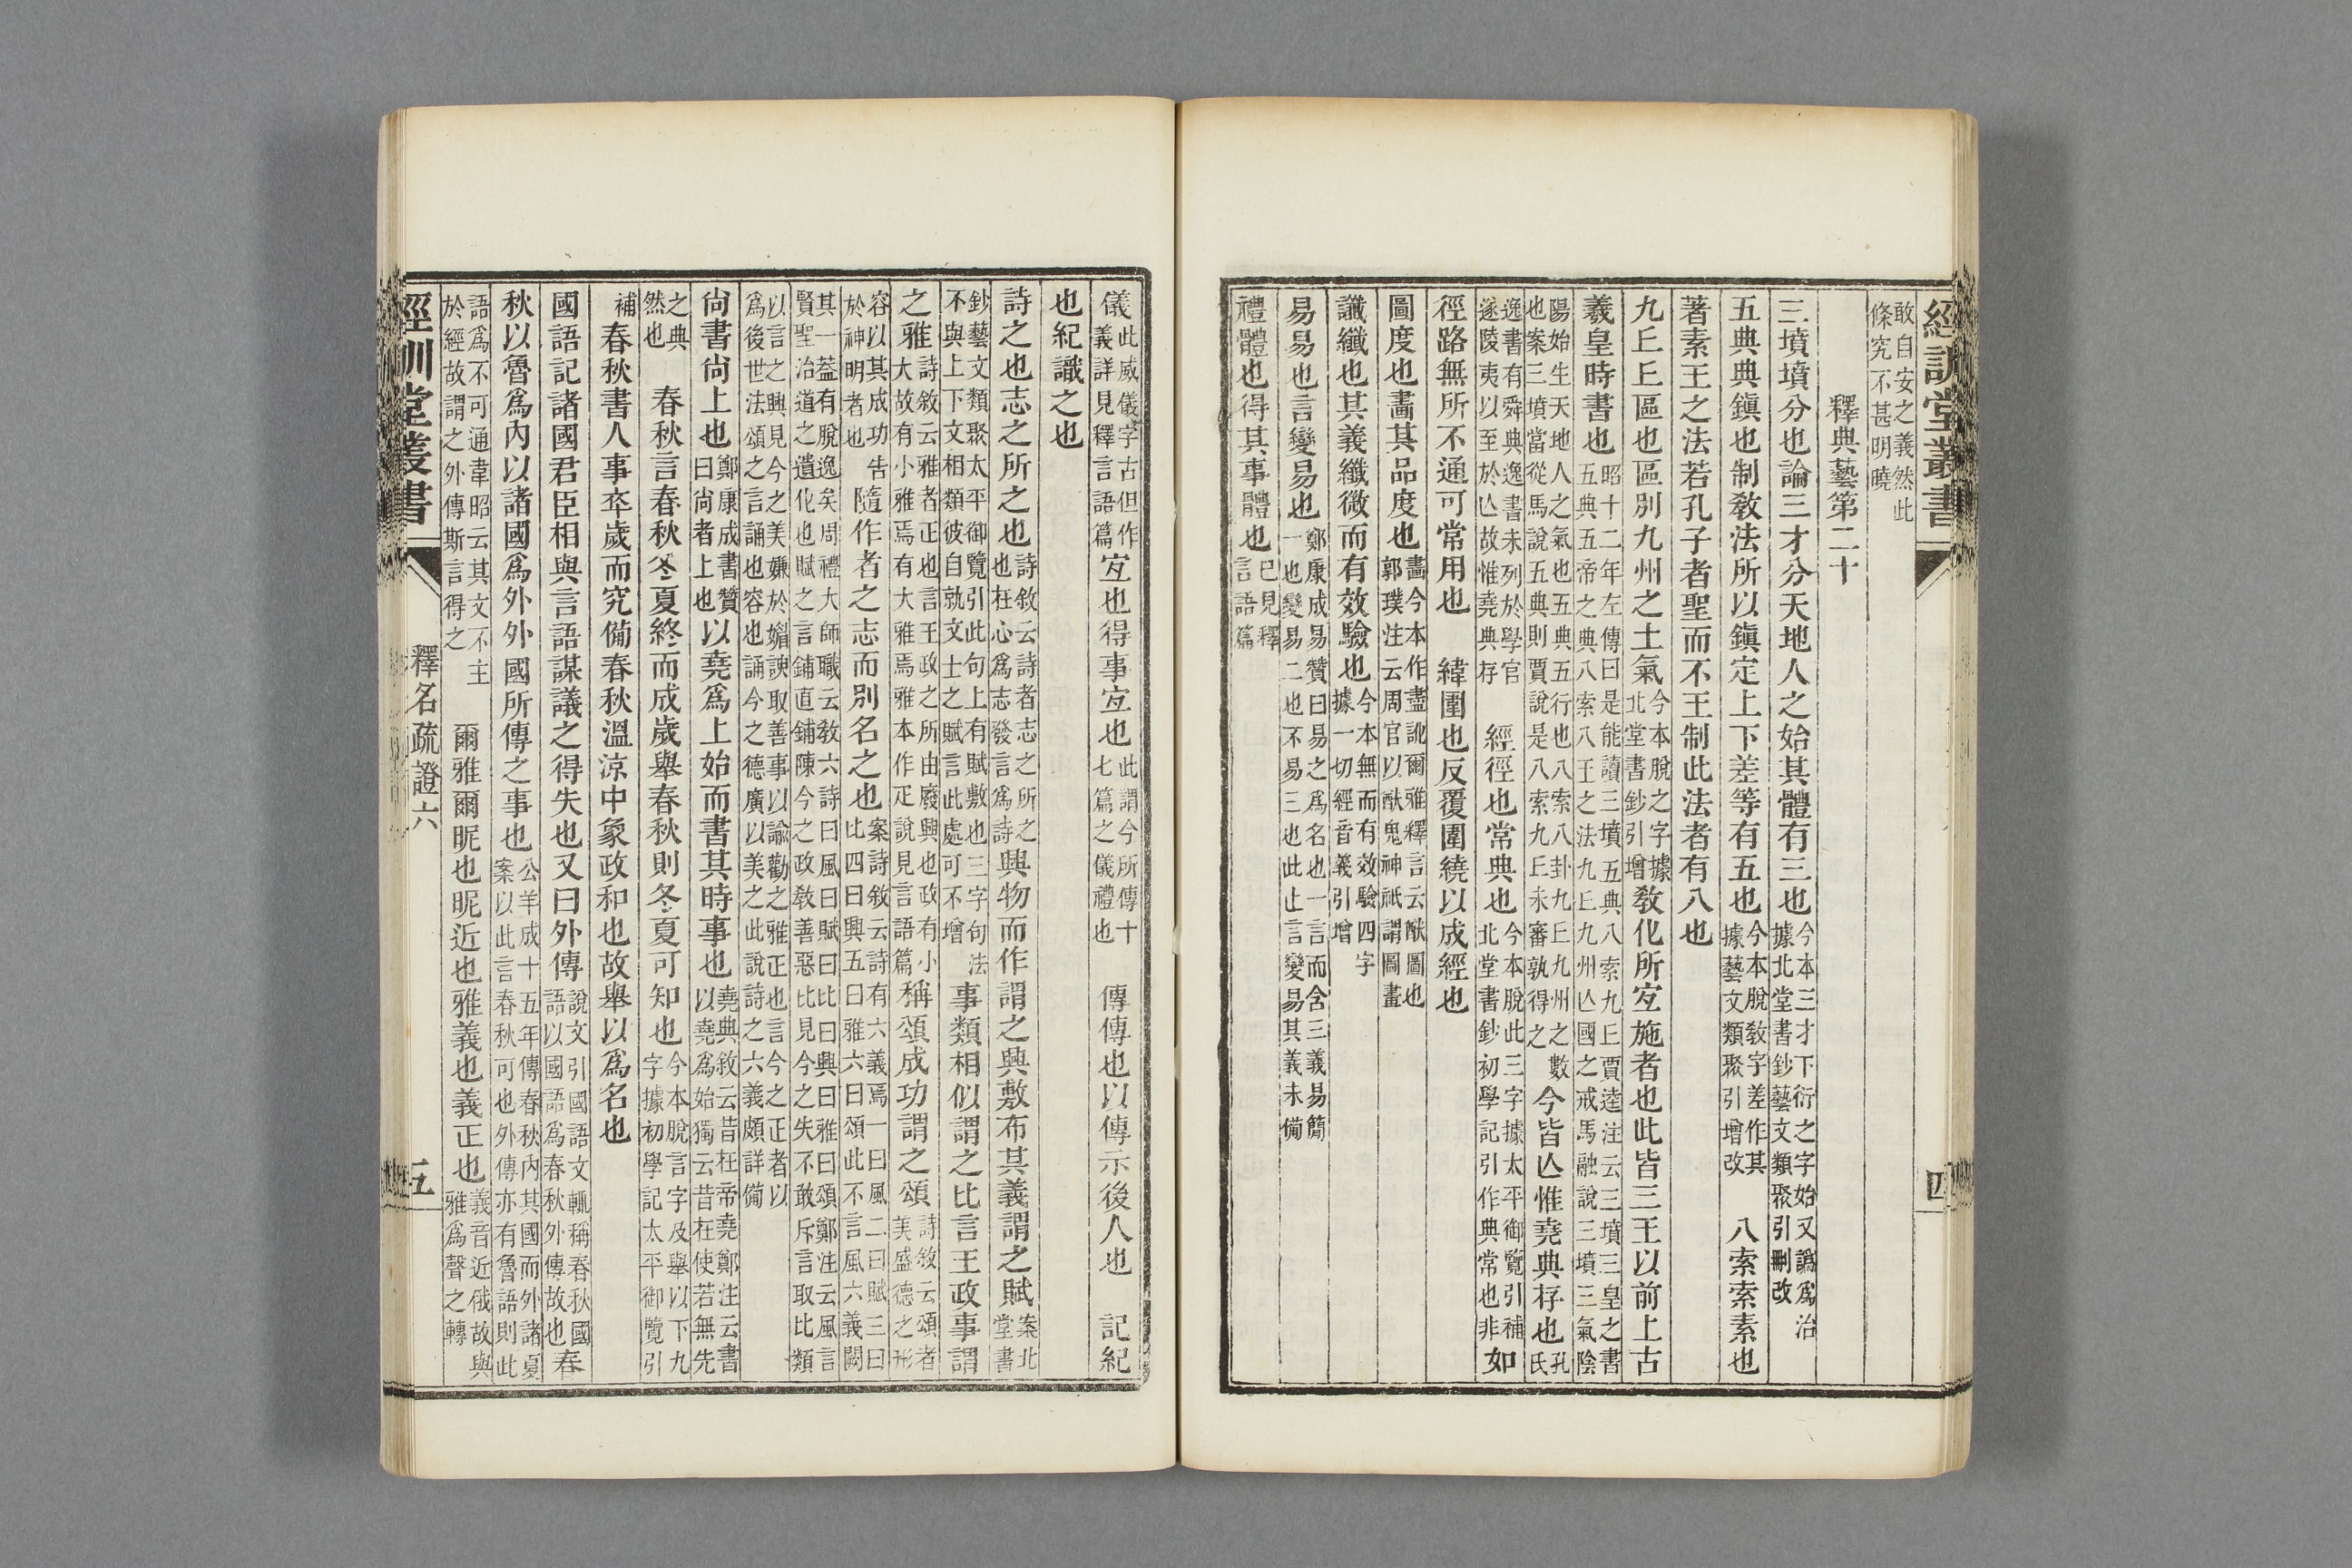 經訓堂叢書 四
敢自安之義然此條究不甚明曉
釋典藝第二十
三墳墳分也論三才分天地人之始其體有三也今本三才下衍之字始又譌爲治據北堂書鈔藝文類聚引刪改
五典典鎭也制敎法所以鎭定上下差等有五也今本脫敎字差作其據藝文類聚引增改 八索索素也
著素王之法若孔子者聖而不王制此法者有八也
九丘丘區也區別九州之土氣今本脫之字據北堂書鈔引增敎化所宐施者也此皆三王以前上古
羲皇時書也昭十二年左傳曰是能讀三墳五典八索九丘賈逵注云三墳三皇之書五典五帝之典八索八王之法九丘九州亾國之戒馬融說三墳三氣陰
陽始生天地人之氣也五典五行也八索八卦九丘九州之數也案三墳當從馬說五典則賈說是八索九丘未審孰得之 今皆亾惟堯典存也孔氏
逸書有舜典逸書未列於學官遂陵夷以至於亾故惟堯典存 經徑也常典也今本脫此三字據太平御覽引補北堂書鈔初學記引作典常也非如
徑路無所不通可常用也 緯圍也反覆圍繞以成經也
圖度也畵其品度也畵今本作盡訛爾雅釋言云猷圖也郭璞注云周官以猷鬼神祇謂圖畫
讖纖也其義纖微而有效驗也今本無而有效驗四字據一切經音義引增
易易也言變易也鄭康成易贊曰易之爲名也一言而含三義易簡一也變易二也不易三也此止言變易其義未備
禮體也得其事體也已見釋言語篇
儀此威儀字古但作義詳見釋言語篇宐也得事宐也此謂今所傳十七篇之儀禮也 傳傳也以傳示後人也 記紀
也紀識之也
詩之也志之所之也詩敘云詩者志之所之也在心爲志發言爲詩興物而作謂之興敷布其義謂之賦案北堂書
鈔藝文類聚太平御覽引此句上有賦敷也三字句法不與上下文相類彼自孰文士之賦言此處可不增 事類相似謂之比言王政事謂
之雅詩敘云雅者正也言王政之所由廢興也政有小大故有小雅焉有大雅焉雅本作疋說見言語篇稱頌成功謂之頌詩敘云頌者美盛德之形
容以其成功告於神明者也 隨作者之志而別名之也案詩敘云詩有六義焉一曰風二曰賦三曰比四曰興五曰雅六曰頌此不言風六義闕
其一蓋有脫逸矣周禮大師職云敎六詩曰風曰賦曰比曰興曰雅曰頌鄭注云風言賢聖治道之遺化也賦之言鋪直鋪陳今之政敎善惡比見今之失不敢斥言取比類
以言之興見今之美嫌於媚諛取善事以諭勸之雅正也言今之正者以爲後世法頌之言誦也容也誦今之德廣以美之此說詩之六義頗詳備
尙書尙上也鄭康成書贊曰尚者上也以堯爲上始而書其時事也堯典敘云昔在帝堯鄭注云書以堯爲始獨云昔在使若無先
之典然也 春秋言春秋冬夏終而成歲舉春秋則冬夏可知也今本脫言字及舉以下九字據初學記太平御覽引
補春秋書人事卒歲而究備春秋溫涼中象政和也故舉以爲名也
國語記諸國君臣相與言語謀議之得失也又曰外傳說文引國語文輒稱春秋國語以國語爲春秋外傳故也春
秋以魯爲內以諸國爲外外國所傳之事也公羊成十五年傳春秋內其國而外諸夏案以此言春秋可也外傳亦有魯語則此
語爲不可通韋昭云其文不主於經故謂之外傳斯言得之 爾雅爾昵也昵近也雅義也義正也義音近俄故與雅爲聲之轉
經訓堂叢書 釋名疏證六 五